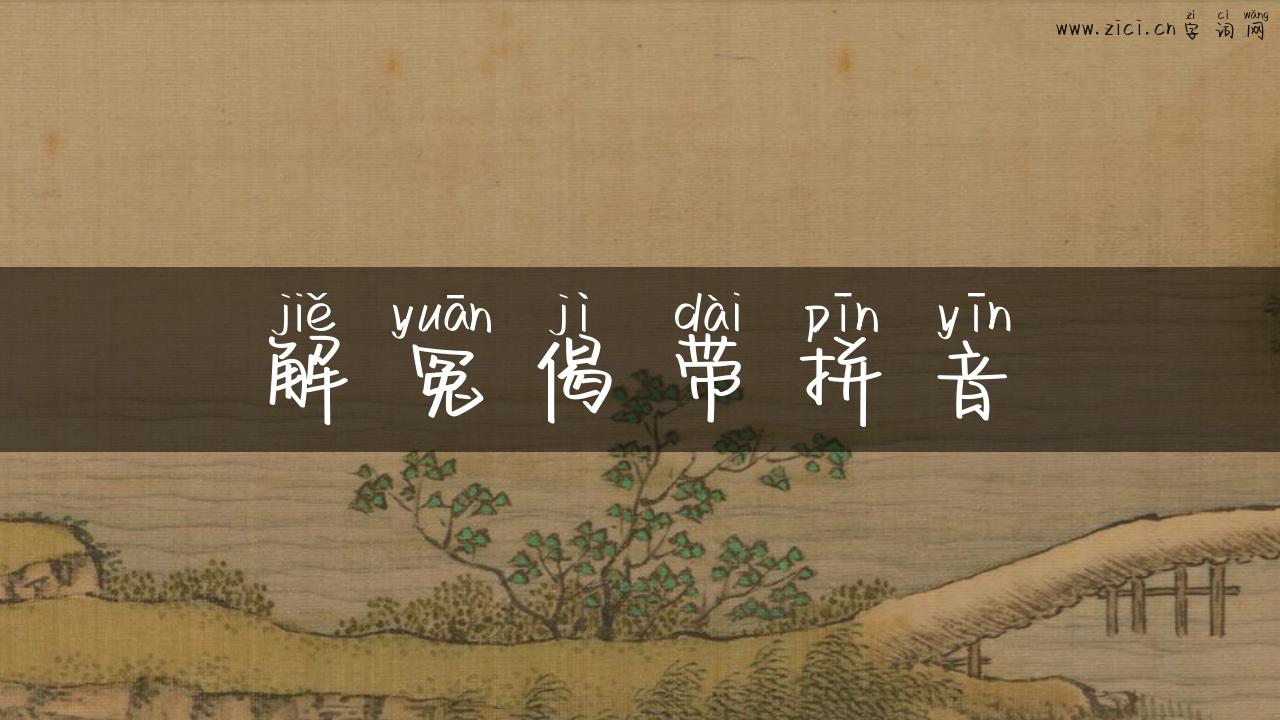 zì cí wǎng
www.zici.cn 字 词 网
jiě yuān jì dài pīn yīn
解 冤 偈 带 拼 音